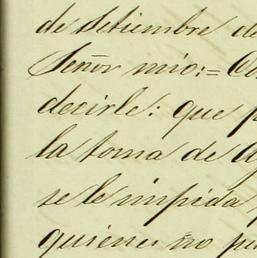 de Setiembre de
Señor mio:=
decirle: que
la toma de
se le impida
quienes no